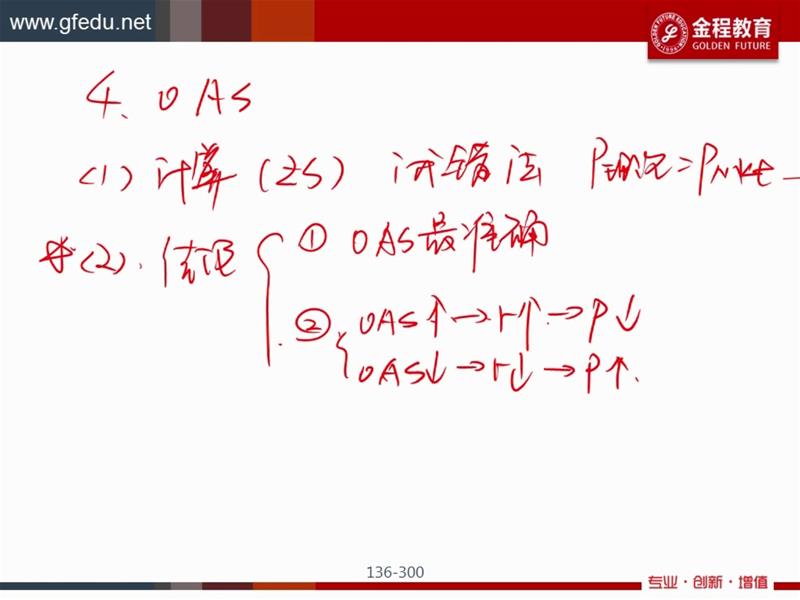 www.gfedu.net
金程教育
GOLDEN FUTURE
4、OAS
(1) 计算 (ZS) 试错法 P理论=Pmkt
(2). 结论
① OAS最准确
② OAS↑→r↑→P↓
OAS↓→r↓→P↑.
136-300
专业·创新·增值